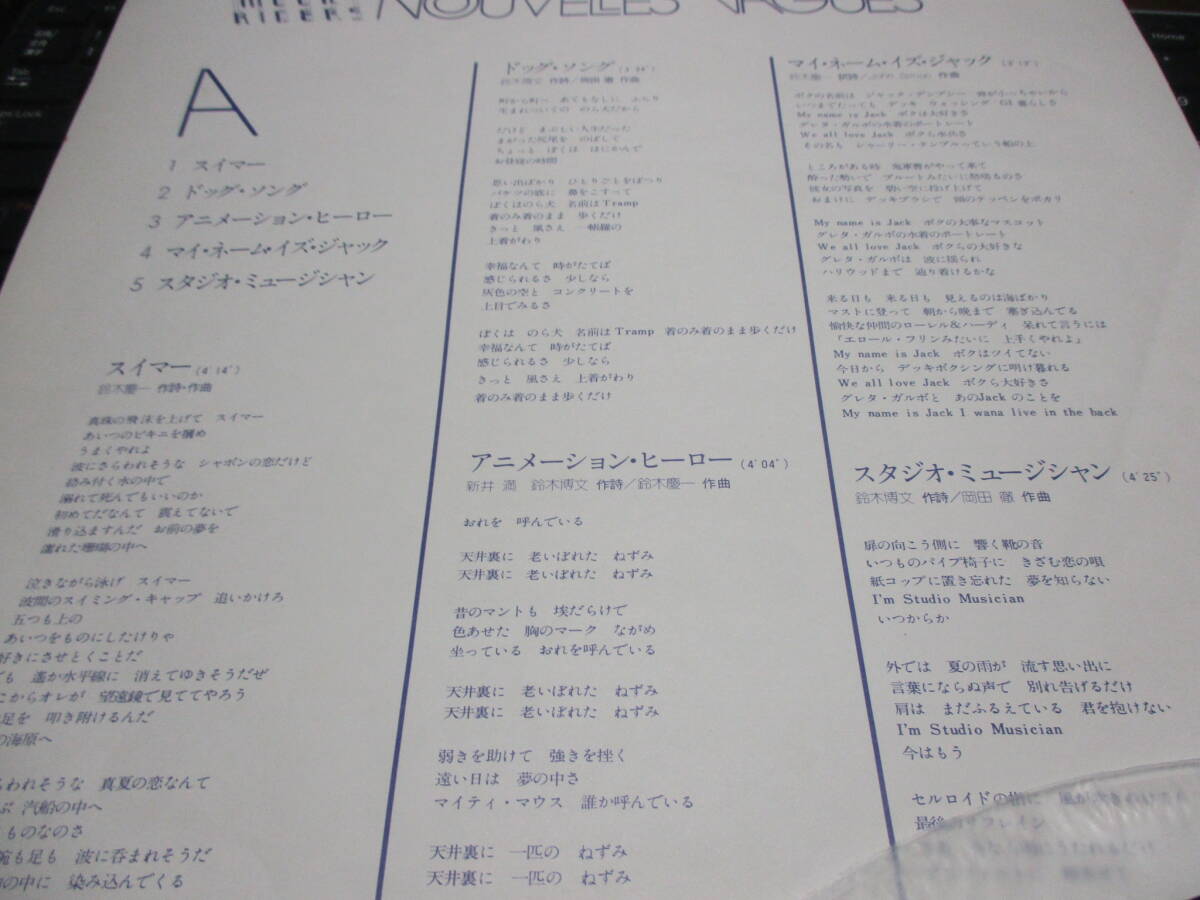 NOUVELLES VAGUES
A
1 スイマー
2 ドッグ・ソング
3 アニメーション・ヒーロー
4 マイ・ネーム・イズ・ジャック
5 スタジオ・ミュージシャン
スイマー (4'14")
鈴木慶一 作詩・作曲
真珠の飛沫を上げて スイマー
あいつのビキニを掴め
うまくやれよ
波にさらわれそうな シャボンの恋だけど
絡み付く水の中で
溺れて死んでもいいのか
初めてだなんて 震えてないで
滑り込ますんだ お前の夢を
濡れた珊瑚の中へ
泣きながら泳げ スイマー
波間のスイミング・キャップ 追いかけろ
五つも上の
あいつをものにしたけりゃ
好きにさせとくことだ
も 遥か水平線に 消えてゆきそうだぜ
こからオレが 望遠鏡で見ててやろう
足を 叩き附けるんだ
の海原へ
われそうな 真夏の恋なんて
ぶ 汽船の中へ
ものなのさ
腕も足も 波に呑まれそうだ
の中に 染み込んでくる
ドッグ・ソング
鈴木博文 作詩/岡田 徹 作曲
町から町へ あてもなしに ふらり
生まれついての のら犬だから
だけど まぶしい人生だった
まがった尻尾を のばして
ちょっと ぼくは はにかんで
お昼寝の時間
思い出ばかり ひとりごとをぽつり
バケツの底に 鼻をこすって
ぼくはのら犬 名前は Tramp
着のみ着のまま 歩くだけ
きっと 風さえ 一帳羅の
上着がわり
幸福なんて 時がたてば
感じられるさ 少しなら
灰色の空と コンクリートを
上目でみるさ
ぼくは のら犬 名前は Tramp 着のみ着のまま歩くだけ
幸福なんて 時がたてば
感じられるさ 少しなら
きっと 風さえ 上着がわり
着のみ着のまま歩くだけ
アニメーション・ヒーロー (4'04")
新井 満 鈴木博文 作詩/鈴木慶一 作曲
おれを 呼んでいる
天井裏に 老いぼれた ねずみ
天井裏に 老いぼれた ねずみ
昔のマントも 埃だらけで
色あせた 胸のマーク ながめ
坐っている おれを呼んでいる
天井裏に 老いぼれた ねずみ
天井裏に 老いぼれた ねずみ
弱きを助けて 強きを挫く
遠い日は 夢の中さ
マイティ・マウス 誰か呼んでいる
天井裏に 一匹の ねずみ
天井裏に 一匹の ねずみ
マイ・ネーム・イズ・ジャック
鈴木慶一 訳詩/John Simon 作曲
ボクの名前は ジャック・デンプシー 背が小っちゃいから
いつまでたっても デッキ ウォッシング GI暮らしさ
My name is Jack ボクは大好きさ
グレタ・ガルボの水着のポートレート
We all love Jack ボクら水兵さ
その名も シャーリー・テンプルっていう船の上
ところがある時 鬼軍曹がやって来て
酔った勢いで ブルートみたいに
彼女の写真を 幼い空に投げ上げて
おまけに デッキブラシで 頭のテッペンをポカリ
My name is Jack ボクの大事なマスコット
グレタ・ガルボの水着のポートレート
We all love Jack ボクらの大好きな
グレタ・ガルボは 波に揺られ
ハリウッドまで 辿り着けるかな
来る日も 来る日も 見えるのは海ばかり
マストに登って 朝から晩まで 塞ぎ込んでる
愉快な仲間のローレル&ハーディ 呆れて言うには
「エロール・フリンみたいに 上手くやれよ」
My name is Jack ボクはツイてない
今日から デッキボクシングに明け暮れる
We all love Jack ボクら大好きさ
グレタ・ガルボと あのJack のことを
My name is Jack I wana live in the back
スタジオ・ミュージシャン (4'25")
鈴木博文 作詩/岡田 徹 作曲
扉の向こう側に 響く靴の音
いつものパイプ椅子に きざむ恋の唄
紙コップに置き忘れた 夢を知らない
I'm Studio Musician
いつからか
外では 夏の雨が 流す思い出に
言葉にならぬ声で 別れ告げるだけ
肩は まだふるえている 君を抱けない
I'm Studio Musician
今はもう
セルロイドの指に
最後のリフレイン